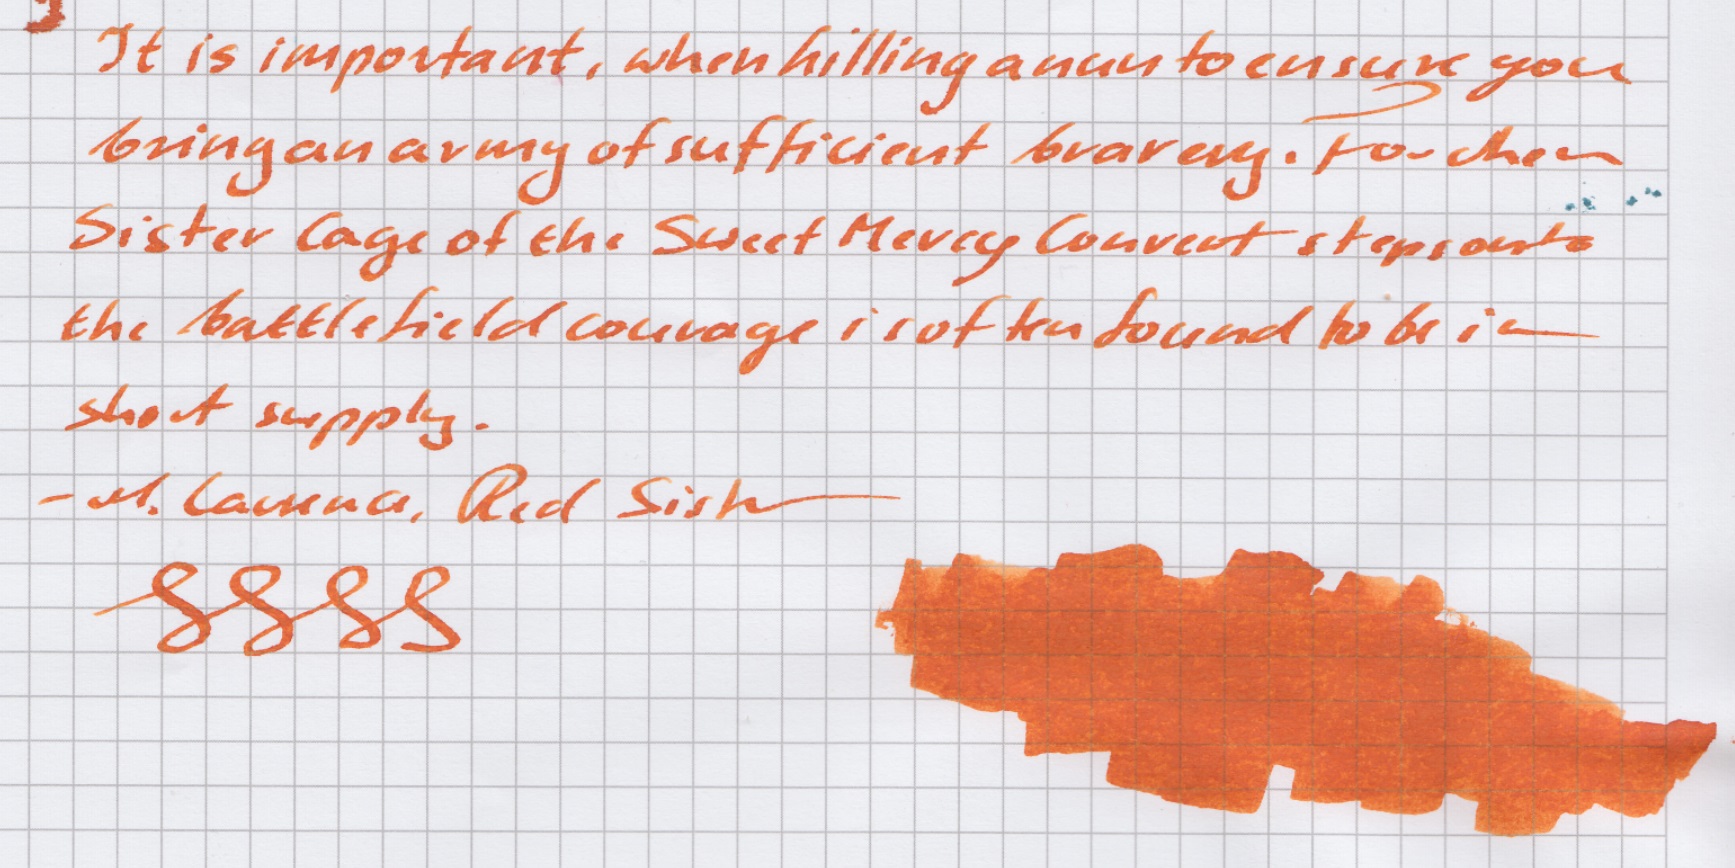 It is important, when killing a nun to ensure you
bring an army of sufficient bravery. For when
Sister Cage of the Sweet Mercy Convent steps onto
the battlefield courage is often found to be in
short supply.
- M. Lawrence, Red Sister